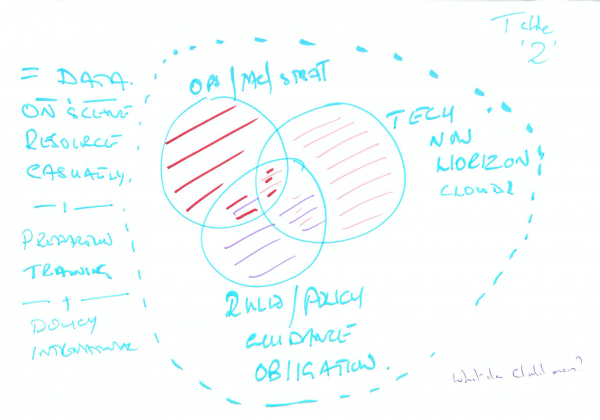 Table
'2'
= DATA.
ON SCENE
RESOURCE
CASUALTY.
PREPARATION
TRAINING
POLICY
INTERNATIONAL
OPS/MC/STRAT
TECH
NOW
HORIZON
CLOUD2
RULES/POLICY
GUIDANCE
OBLIGATION.
What does Cloud mean?